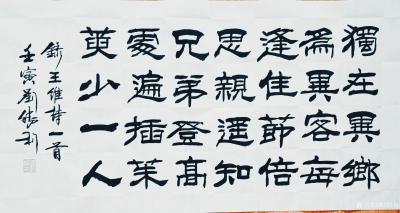 獨在異鄉
爲異客每
逢佳節倍
思親遥知
兄弟登高
處遍插茱
萸少一人
錄王維詩一首
壬寅劉